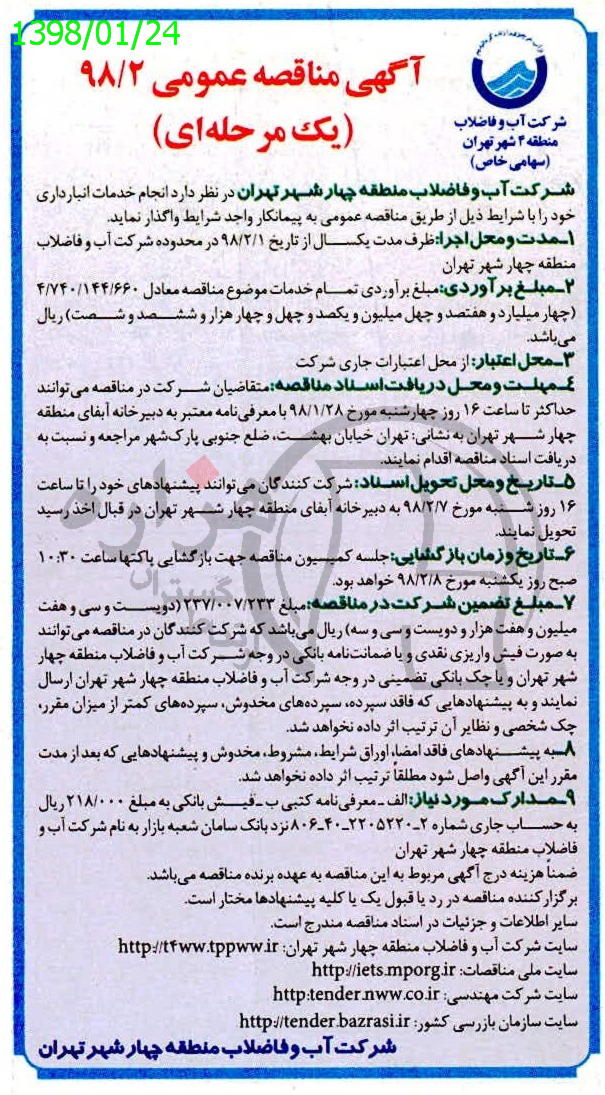 1398/01/24
آگهی مناقصه عمومی ۹۸/۲
(یک مرحله‌ای)
شرکت آب و فاضلاب
منطقه ۴ شهر تهران
(سهامی خاص)
شرکت آب و فاضلاب منطقه چهار شهر تهران در نظر دارد انجام خدمات انبارداری
خود را با شرایط ذیل از طریق مناقصه عمومی به پیمانکار واجد شرایط واگذار نماید.
۱ـ مدت و محل اجرا: ظرف مدت یکسال از تاریخ ۹۸/۲/۱ در محدوده شرکت آب و فاضلاب
منطقه چهار شهر تهران
۲ـ مبلغ برآوردی: مبلغ برآوردی تمام خدمات موضوع مناقصه معادل ۴/۷۴۰/۱۴۴/۶۶۰
(چهار میلیارد و هفتصد و چهل میلیون و یکصد و چهل و چهار هزار و ششصد و شصت) ریال
می‌باشد.
۳ـ محل اعتبار: از محل اعتبارات جاری شرکت
۴ـ مهلت و محل دریافت اسناد مناقصه: متقاضیان شرکت در مناقصه می‌توانند
حداکثر تا ساعت ۱۶ روز چهارشنبه مورخ ۹۸/۱/۲۸ با معرفی‌نامه معتبر به دبیرخانه آبفای منطقه
چهار شهر تهران به نشانی: تهران خیابان بهشت، ضلع جنوبی پارک‌شهر مراجعه و نسبت به
دریافت اسناد مناقصه اقدام نمایند.
۵ـ تاریخ و محل تحویل اسناد: شرکت کنندگان می‌توانند پیشنهادهای خود را تا ساعت
۱۶ روز شنبه مورخ ۹۸/۲/۷ به دبیرخانه آبفای منطقه چهار شهر تهران در قبال اخذ رسید
تحویل نمایند.
۶ـ تاریخ و زمان بازگشایی: جلسه کمیسیون مناقصه جهت بازگشایی پاکتها ساعت ۱۰:۳۰
صبح روز یکشنبه مورخ ۹۸/۲/۸ خواهد بود.
۷ـ مبلغ تضمین شرکت در مناقصه: مبلغ ۲۳۷/۰۰۷/۲۳۳ (دویست و سی و هفت
میلیون و هفت هزار و دویست و سی و سه) ریال می‌باشد که شرکت کنندگان در مناقصه می‌توانند
به صورت فیش واریزی نقدی و یا ضمانت‌نامه بانکی در وجه شرکت آب و فاضلاب منطقه چهار
شهر تهران و یا چک بانکی تضمینی در وجه شرکت آب و فاضلاب منطقه چهار شهر تهران ارسال
نمایند و به پیشنهادهایی که فاقد سپرده، سپرده‌های مخدوش، سپرده‌های کمتر از میزان مقرر،
چک شخصی و نظایر آن ترتیب اثر داده نخواهد شد.
۸ـ به پیشنهادهای فاقد امضا، اوراق شرایط، مشروط، مخدوش و پیشنهادهایی که بعد از مدت
مقرر این آگهی واصل شود مطلقاً ترتیب اثر داده نخواهد شد.
۹ـ مدارک مورد نیاز: الف ـ معرفی‌نامه کتبی ب ـ فیش بانکی به مبلغ ۲۱۸/۰۰۰ ریال
به حساب جاری شماره ۲ـ۲۲۰۵۲۲۰ـ۴۰ـ۸۰۶ نزد بانک سامان شعبه بازار به نام شرکت آب و
فاضلاب منطقه چهار شهر تهران
ضمناً هزینه درج آگهی مربوط به این مناقصه به عهده برنده مناقصه می‌باشد.
برگزارکننده مناقصه در رد یا قبول یک یا کلیه پیشنهادها مختار است.
سایر اطلاعات و جزئیات در اسناد مناقصه مندرج است.
سایت شرکت آب و فاضلاب منطقه چهار شهر تهران: http://t4ww.tppww.ir
سایت ملی مناقصات: http://iets.mporg.ir
سایت شرکت مهندسی: http:tender.nww.co.ir
سایت سازمان بازرسی کشور: http://tender.bazrasi.ir
شرکت آب و فاضلاب منطقه چهار شهر تهران